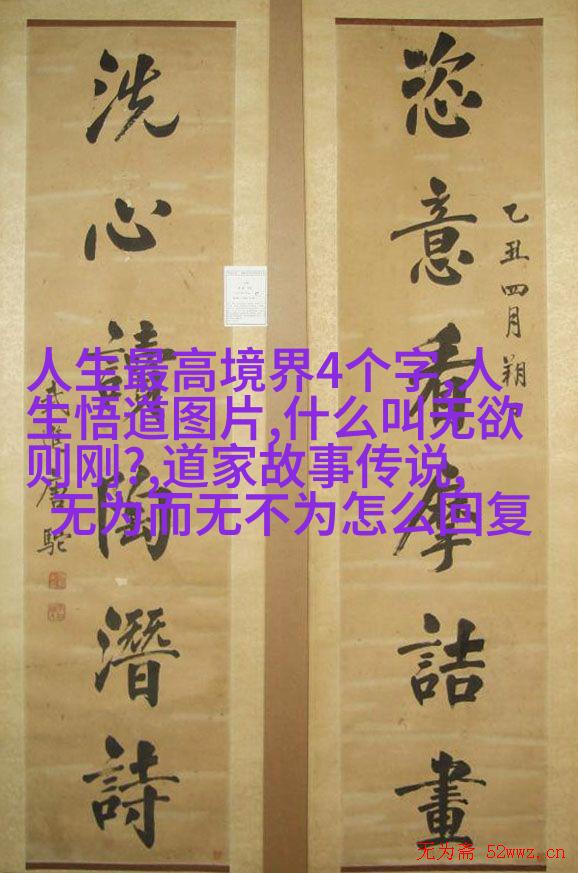 恣意看摩詰畫
乙丑四月朔
洗心讀陶潛詩
武進唐駝
人生最高境界4个字,人
生悟道图片,什么叫无欲
则刚?,道家故事传说,
无为而无不为怎么回复
无为斋 52wwz.cn